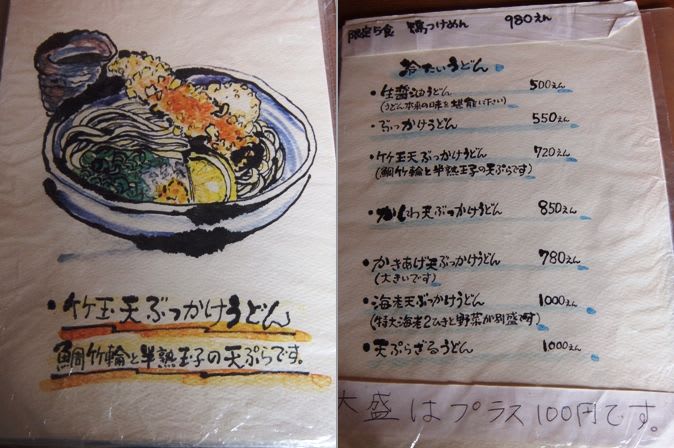 ・竹玉天ぶっかけうどん
鯛竹輪と半熟玉子の天ぷらです。
限定5食 鶏つけめん 980えん
冷たいうどん
・生醤油うどん 500えん
(うどん本来の味を堪能下さい)
・ぶっかけうどん 550えん
・竹玉天ぶっかけうどん 720えん
(鯛竹輪と半熟玉子の天ぷらです)
・かしわ天ぶっかけうどん 850えん
・かきあげ天ぶっかけうどん 780えん
(大きいです)
・海老天ぶっかけうどん 1000えん
(特大海老2ひきと野菜が別盛です)
・天ぷらざるうどん 1000えん
大盛はプラス100円です。